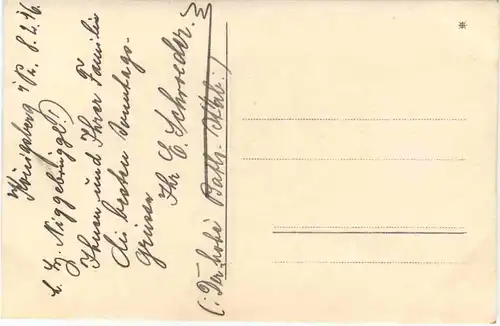 Königsberg i/Pr. 8.2.26.
b. Hg. Niggebrügge!)
Ihnen und Ihrer Familie
die besten Sonntags-
grüsse
Ihr E. Schroeder.